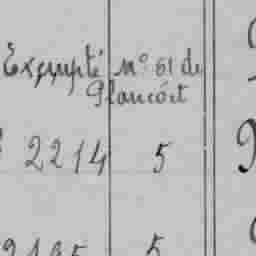 Exempté n° 61 de
Plancoët
2214 5
5